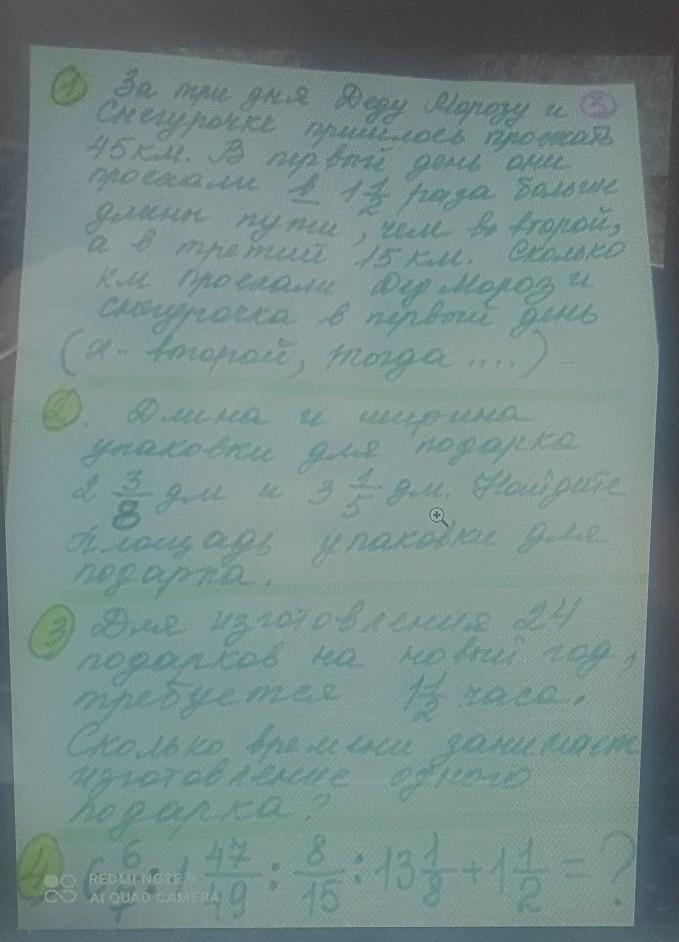 1 За три дня Деду Морозу и 3
Снегурочке пришлось проехать
45 км. В первый день они
проехали в 1 1/2 раза больше
длины пути, чем во второй,
а в третий 15 км. Сколько
км проехали Дед Мороз и
снегурочка в первый день
(х - второй, тогда ....)
2. Длина и ширина
упаковки для подарка
2 3/8 дм и 3 1/5 дм. Найдите
площадь упаковки для
подарка.
3 Для изготовления 24
подарков на новый год,
требуется 1 1/2 часа.
Сколько времени занимает
изготовление одного
подарка?
4 6 6/7 : 1 47/49 : 8/15 : 13 1/8 + 1 1/2 = ?
REDMI NOTE
AI QUAD CAMERA